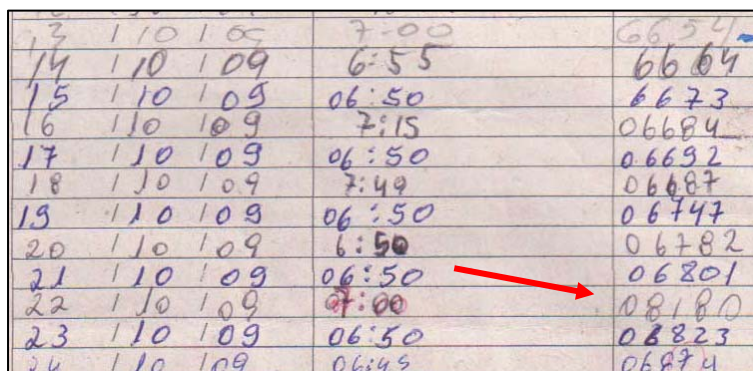 13 / 10 / 09 7:00 6654
14 / 10 / 09 6:55 6664
15 / 10 / 09 06:50 6673
16 / 10 / 09 7:15 06684
17 / 10 / 09 06:50 06692
18 / 10 / 09 7:49 06687
19 / 10 / 09 06:50 06747
20 / 10 / 09 6:50 06782
21 / 10 / 09 06:50 06801
22 / 10 / 09 07:00 08180
23 / 10 / 09 06:50 06823
24 / 10 / 09 06:45 06874